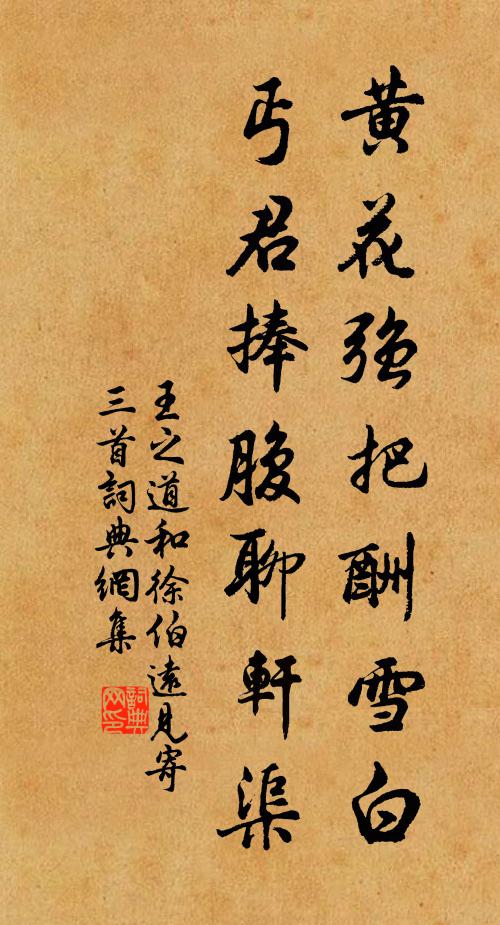 黄花強把酬雪白
丐君捧腹聊軒渠
王之道和徐伯遠見寄
三首詞典網集
詞典
网印